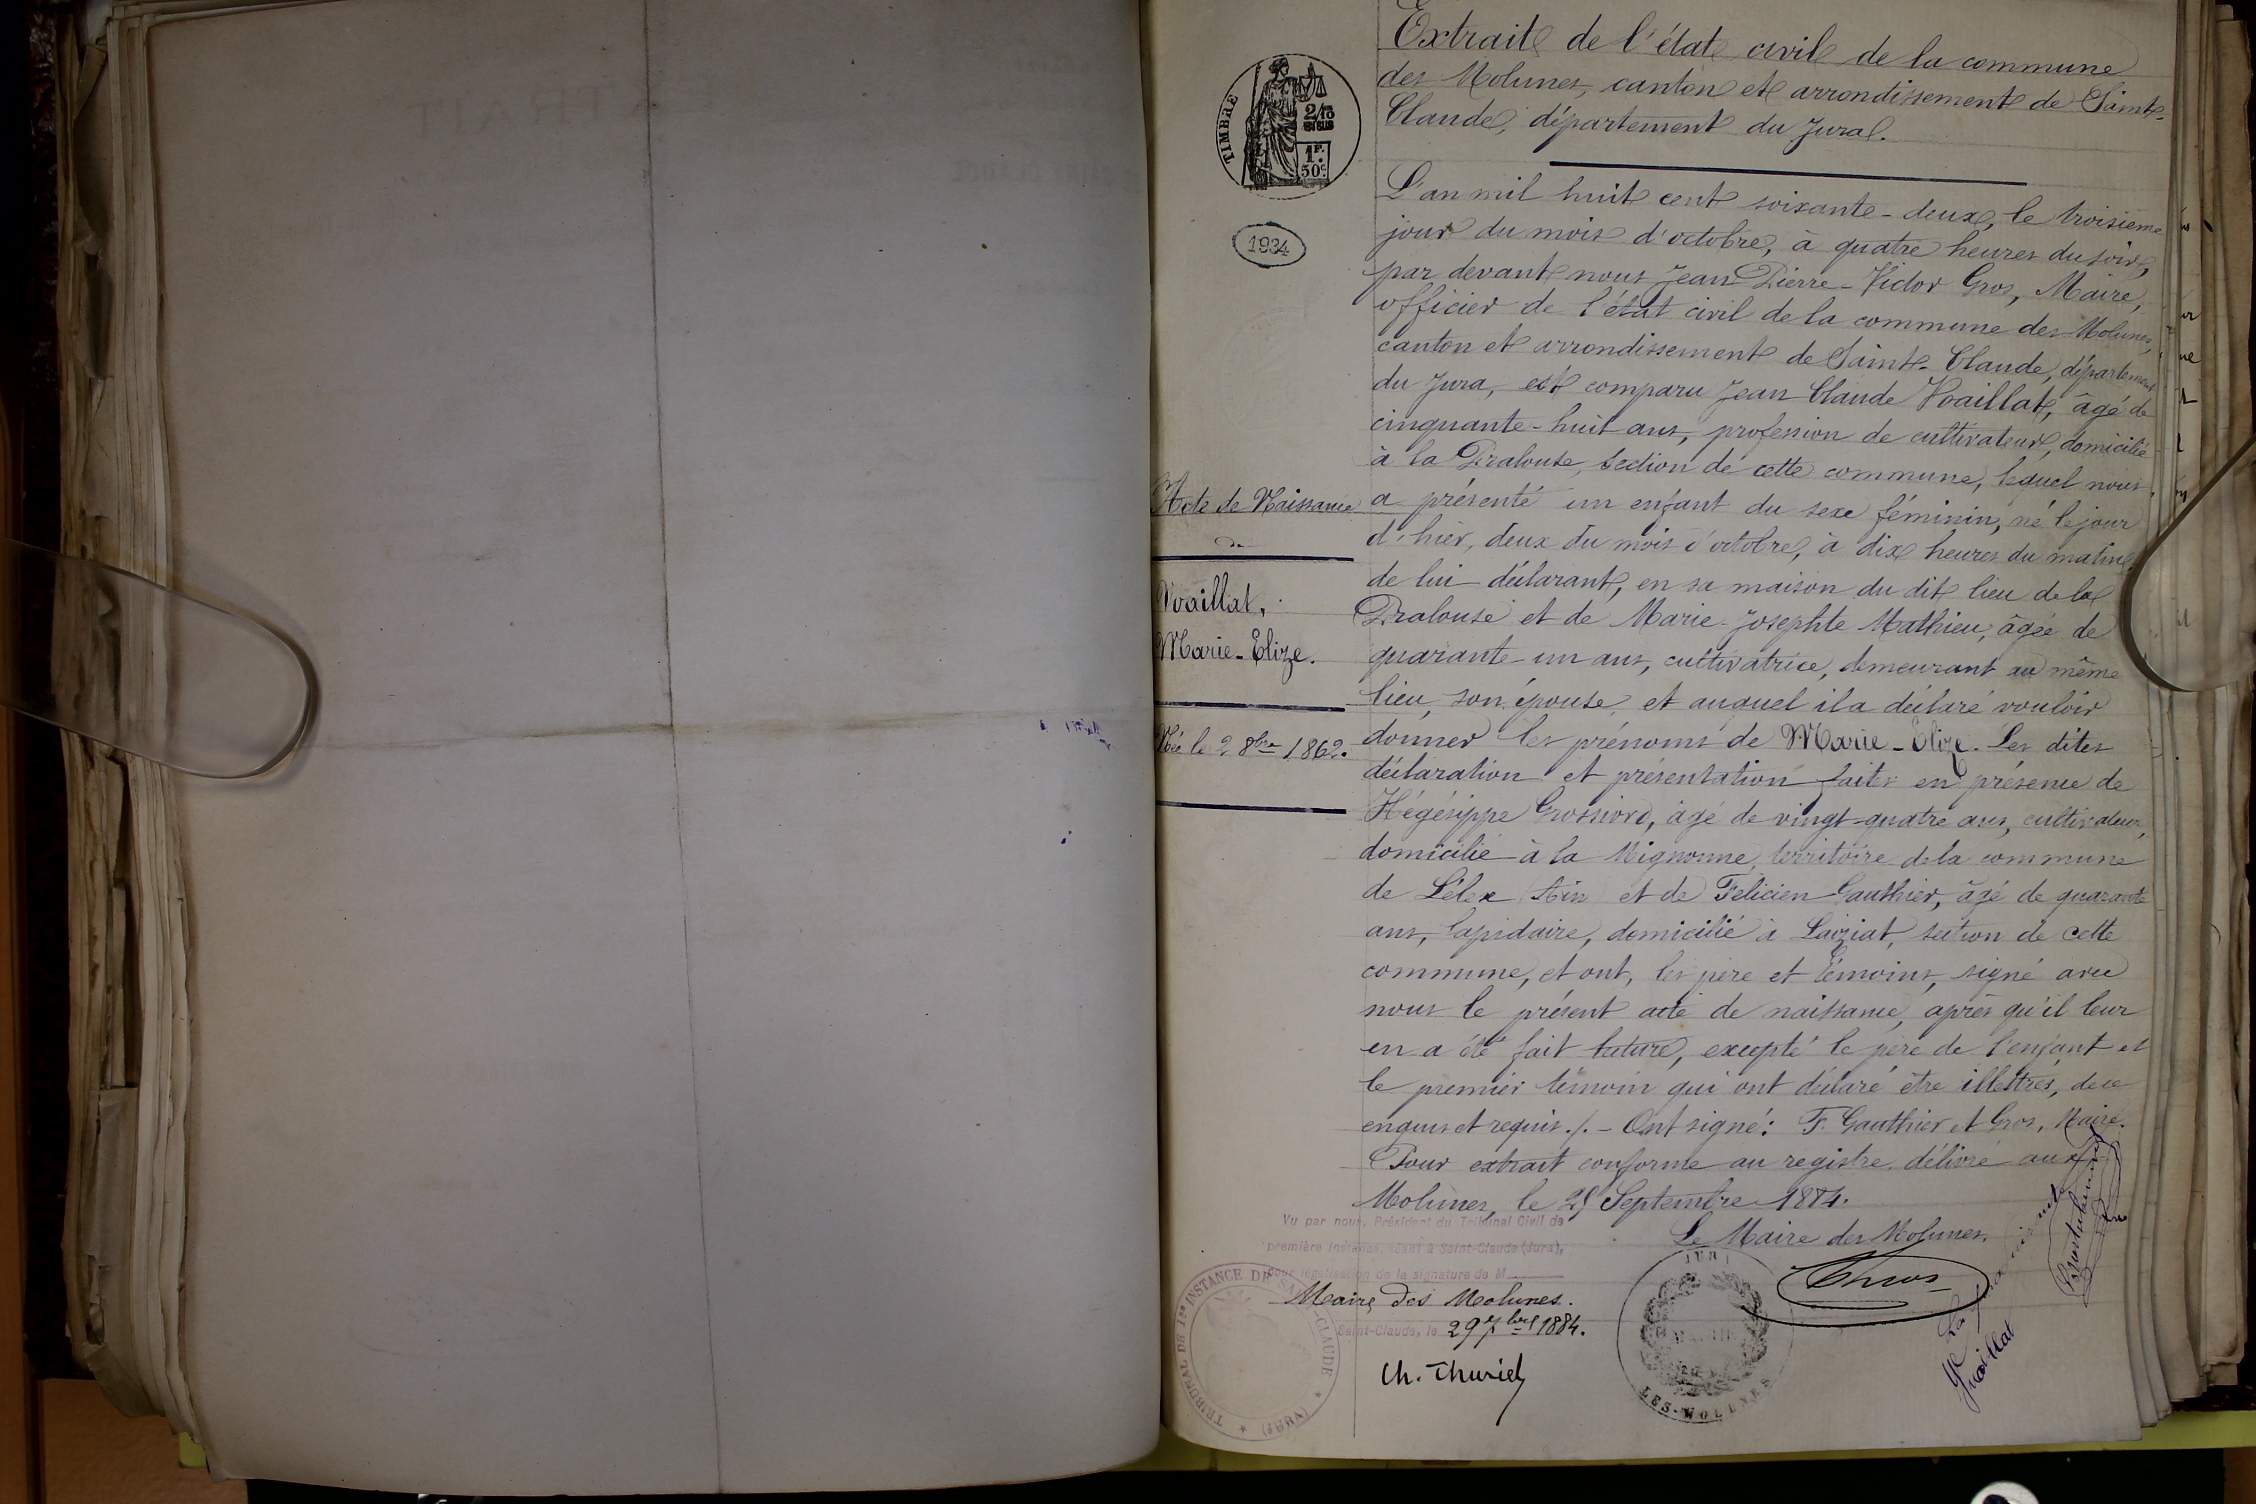 Extrait de l'état civil de la commune
des Molunes, canton et arrondissement de Saint-
Claude, département du Jura.
TIMBRE
2/10
EN SUS
1F.
50c.
1934
L'an mil huit cent soixante-deux, le troisième
jour du mois d'octobre, à quatre heures du soir,
par devant nous Jean Pierre-Victor Gros, Maire,
officier de l'état civil de la commune des Molunes,
canton et arrondissement de Saint-Claude, département
du Jura, est comparu Jean Claude Voaillat, âgé de
cinquante-huit ans, profession de cultivateur, domicilié
à la Pralouse, section de cette commune, lequel nous
a présenté un enfant du sexe féminin, né le jour
d'hier, deux du mois d'octobre, à dix heures du matin,
de lui déclarant, en sa maison du dit lieu de la
Pralouse et de Marie-Josephte Mathieu, âgée de
quarante-un ans, cultivatrice, demeurant au même
lieu, son épouse, et auquel il a déclaré vouloir
donner les prénoms de Marie-Elize. Les dites
déclaration et présentation faites en présence de
Hégésippe Grossiord, âgé de vingt-quatre ans, cultivateur,
domicilié à la Mignonne, territoire de la commune
de Lélex Ain et de Félicien Gauthier, âgé de quarante
ans, lapidaire, domicilié à Laiziat, section de cette
commune, et ont, les père et témoins, signé avec
nous le présent acte de naissance, après qu'il leur
en a été fait lecture, excepté le père de l'enfant et
le premier témoin qui ont déclaré être illettrés, de ce
enquis et requis ./. - Ont signé: F. Gauthier et Gros, Maire.
Pour extrait conforme au registre, délivré aux
Molunes, le 28 Septembre 1884.
Le Maire des Molunes.
Gros
Acte de Naissance
de
Voaillat,
Marie-Elize.
Née le 2 8bre 1862.
Vu par nous, Président du Tribunal Civil de
première instance, séant à Saint-Claude (Jura),
pour légalisation de la signature de M
Maire des Molunes.
Saint-Claude, le 29 7bre 1884.
Ch. Thuriet
TRIBUNAL DE 1re INSTANCE DE SAINT-CLAUDE (JURA)
JURA
MAIRIE
LES-MOLUNES
Voaillat